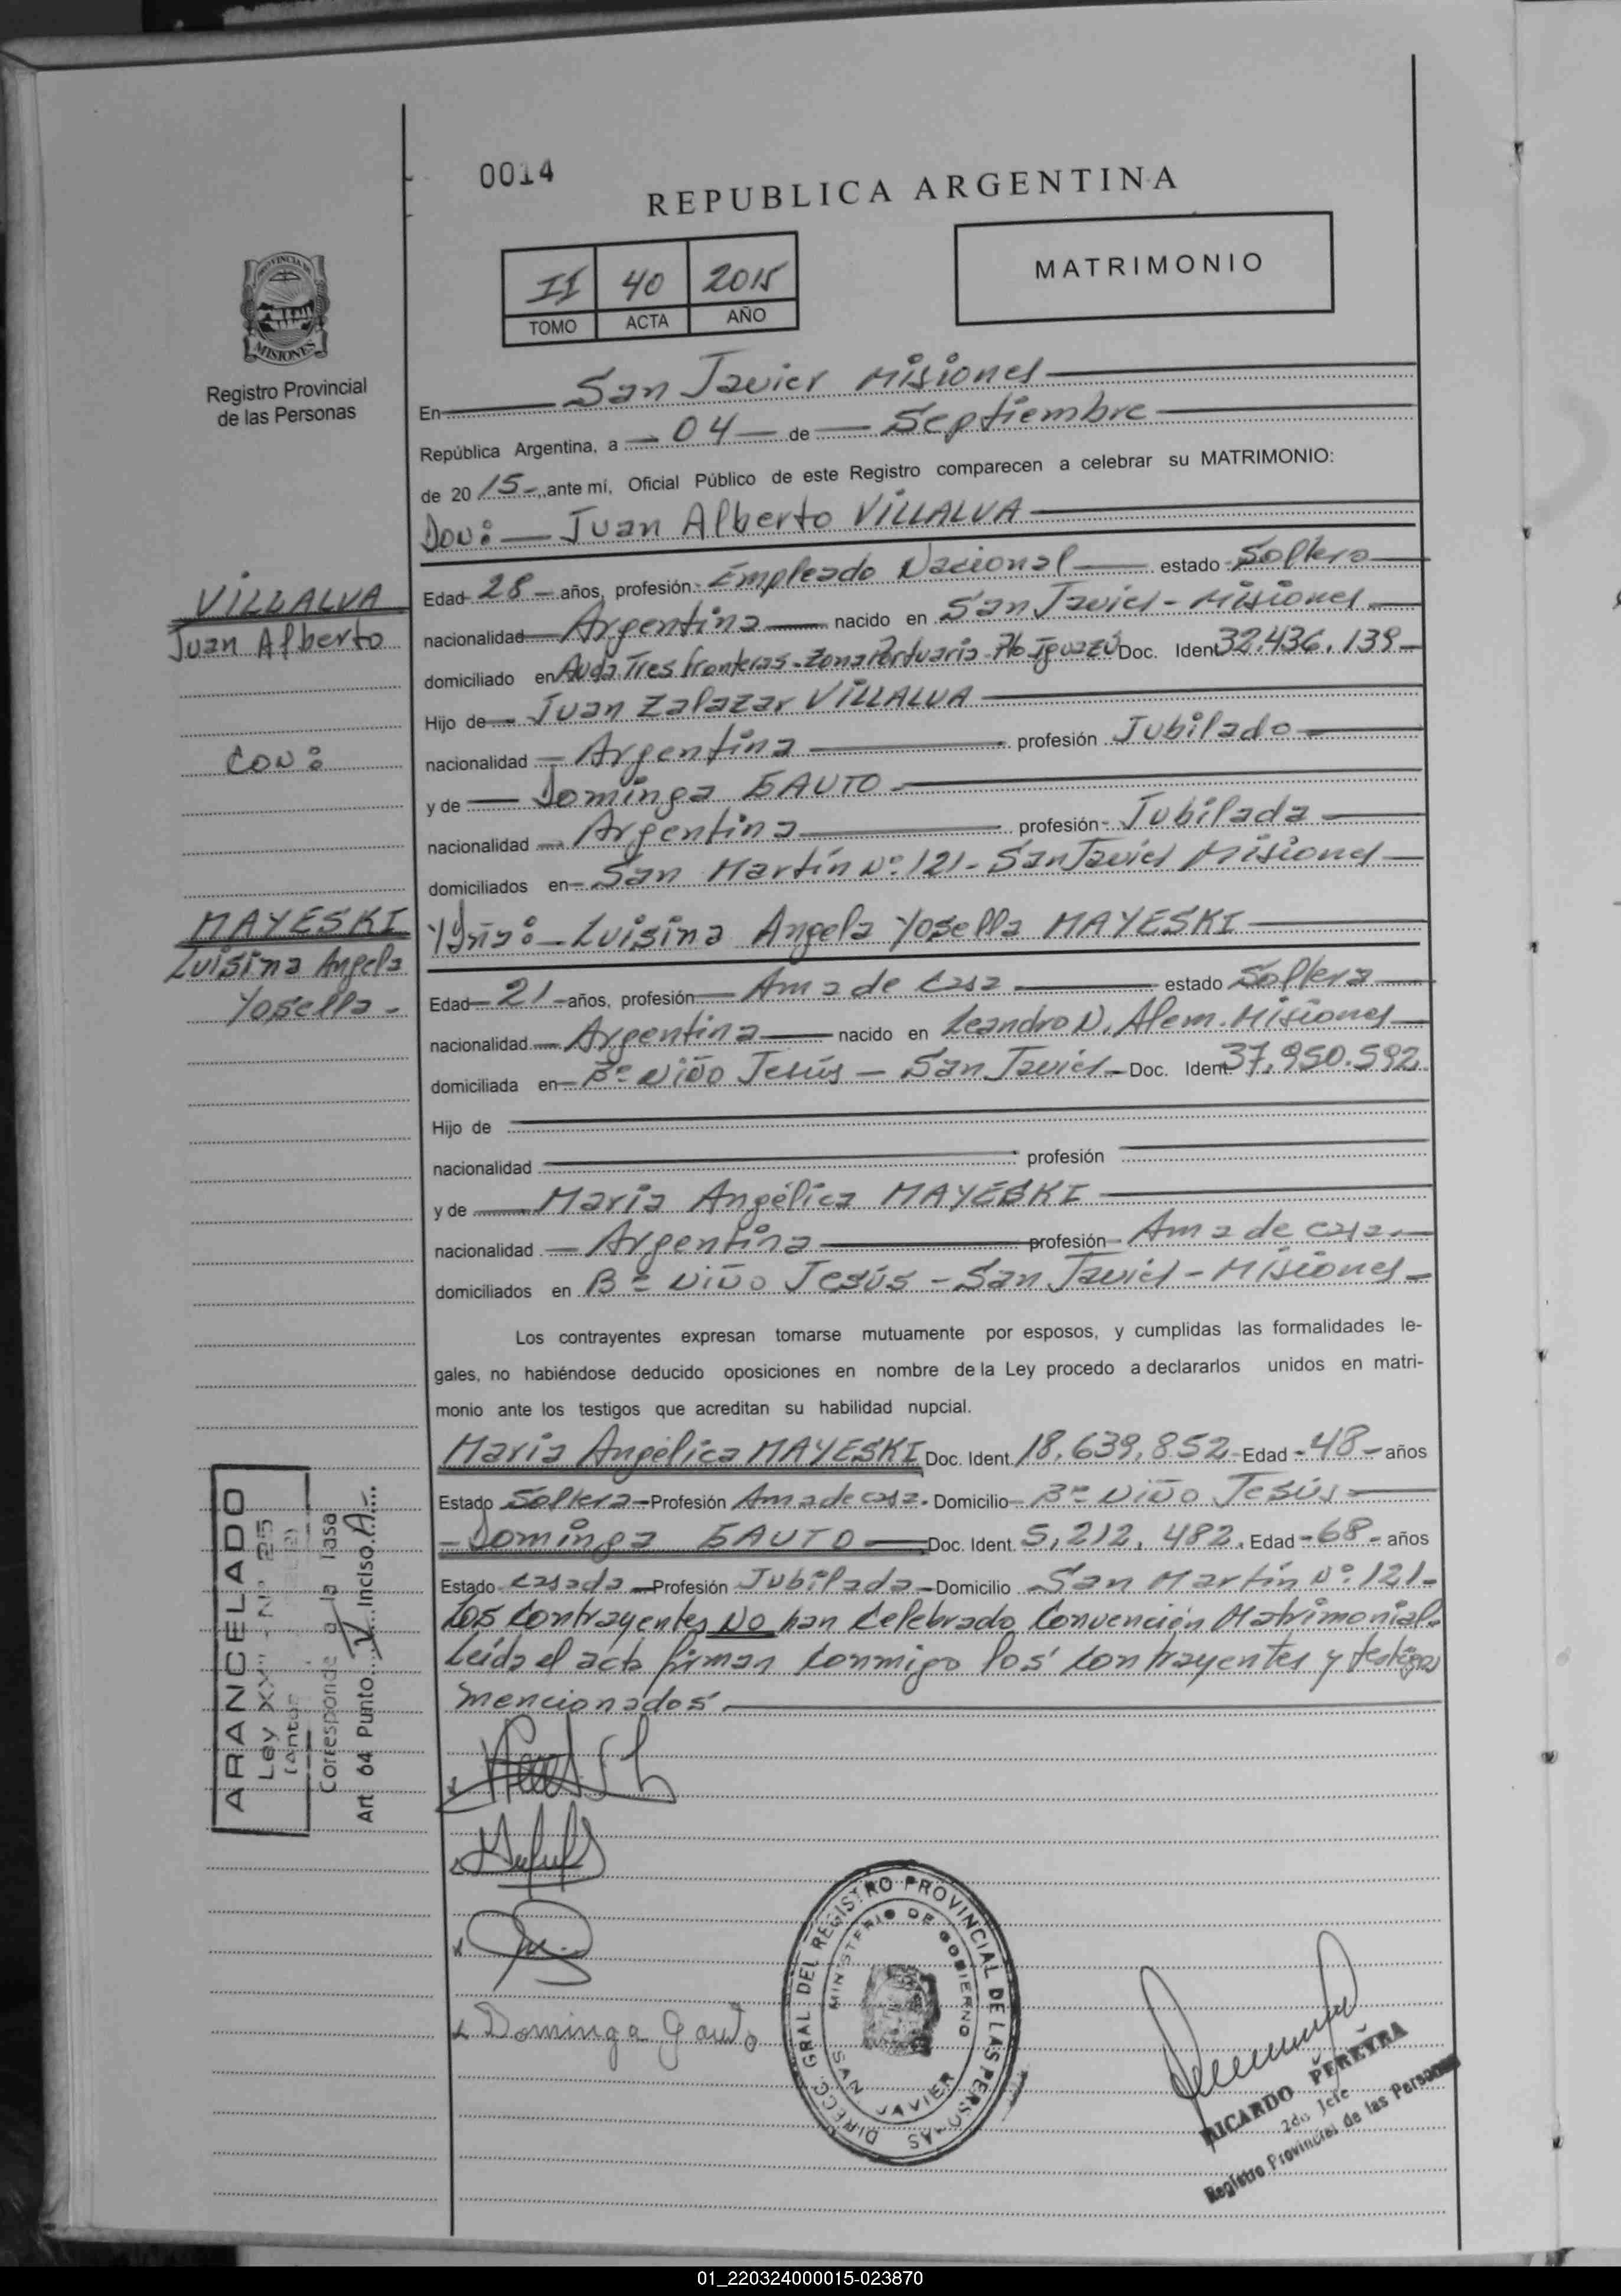 0014
REPUBLICA ARGENTINA
II 40 2015
TOMO ACTA AÑO
MATRIMONIO
PROVINCIA DE
MISIONES
Registro Provincial
de las Personas
En San Javier Misiones
República Argentina, a 04 de Septiembre
de 2015 ante mí, Oficial Público de este Registro comparecen a celebrar su MATRIMONIO:
DON: Juan Alberto VILLALVA
VILLALVA
Juan Alberto
CON:
MAYESKI
Luisina Angela
Yosella
Edad 28 años, profesión Empleado Nacional estado Soltero
nacionalidad Argentina nacido en San Javier - Misiones
domiciliado en Avda Tres fronteras - Zona Portuaria - Pto Iguazú Doc. Ident 32.436.139
Hijo de Juan Zalazar VILLALVA
nacionalidad Argentina profesión Jubilado
y de Dominga GAUTO
nacionalidad Argentina profesión Jubilada
domiciliados en San Martín Nº 121 - San Javier Misiones
Y Dña: Luisina Angela Yosella MAYESKI
Edad 21 años, profesión Ama de casa estado Soltera
nacionalidad Argentina nacido en Leandro N. Alem. Misiones
domiciliada en Bº Niño Jesús - San Javier Doc. Ident 37.950.592
Hijo de
nacionalidad profesión
y de Maria Angélica MAYESKI
nacionalidad Argentina profesión Ama de casa
domiciliados en Bº Niño Jesús - San Javier - Misiones
Los contrayentes expresan tomarse mutuamente por esposos, y cumplidas las formalidades le-
gales, no habiéndose deducido oposiciones en nombre de la Ley procedo a declararlos unidos en matri-
monio ante los testigos que acreditan su habilidad nupcial.
Maria Angélica MAYESKI Doc. Ident. 18.639.852 Edad 48 años
Estado Soltera Profesión Ama de casa. Domicilio Bº Niño Jesús
Dominga GAUTO Doc. Ident. 5,212,482. Edad 68 años
Estado Casada Profesión Jubilada Domicilio San Martín Nº 121
Los Contrayentes NO han Celebrado Convención Matrimonial.
Leída el acta firman conmigo los contrayentes y testigos
mencionados.
ARANCELADO
Ley XXII - Nº 25
Corresponde a la Tasa
Art. 64 Punto V Inciso A
Dominga Gauto
DIRECC. GRAL DEL REGISTRO PROVINCIAL DE LAS PERSONAS
MINISTERIO DE GOBIERNO
SAN JAVIER
RICARDO PEREYRA
2do Jefe
Registro Provincial de las Personas
01_220324000015-023870